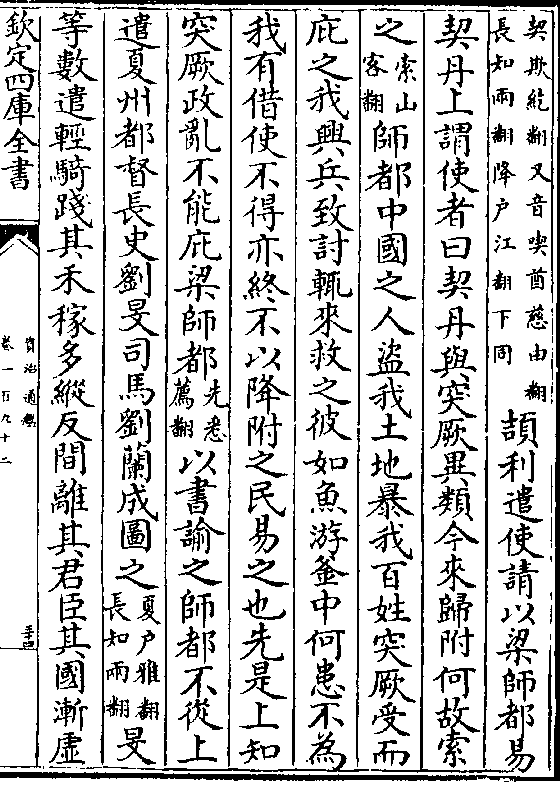 契欺紇翻又音喫酋慈由翻
長知兩翻降户江翻下同
頡利遣使請以梁師都易
契丹上謂使者曰契丹與突厥異類今來歸附何故索
之
索山
客翻
師都中國之人盜我土地暴我百姓突厥受而
庇之我興兵致討輒來救之彼如魚游釜中何患不為
我有借使不得亦終不以降附之民易之也先是上知
突厥政亂不能庇梁師都
先悉
薦翻
以書諭之師都不從上
遣夏州都督長史劉旻司馬劉蘭成圖之
夏户雅翻
長知兩翻
旻
等數遣輕騎踐其禾稼多縱反間離其君臣其國漸虛
欽定四庫全書
資治通鑑
卷一百九十二